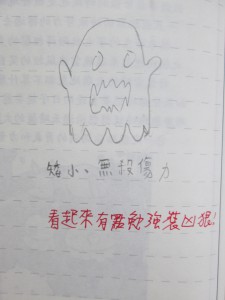 矮小、無殺傷力
看起來有點勉強裝凶狠!